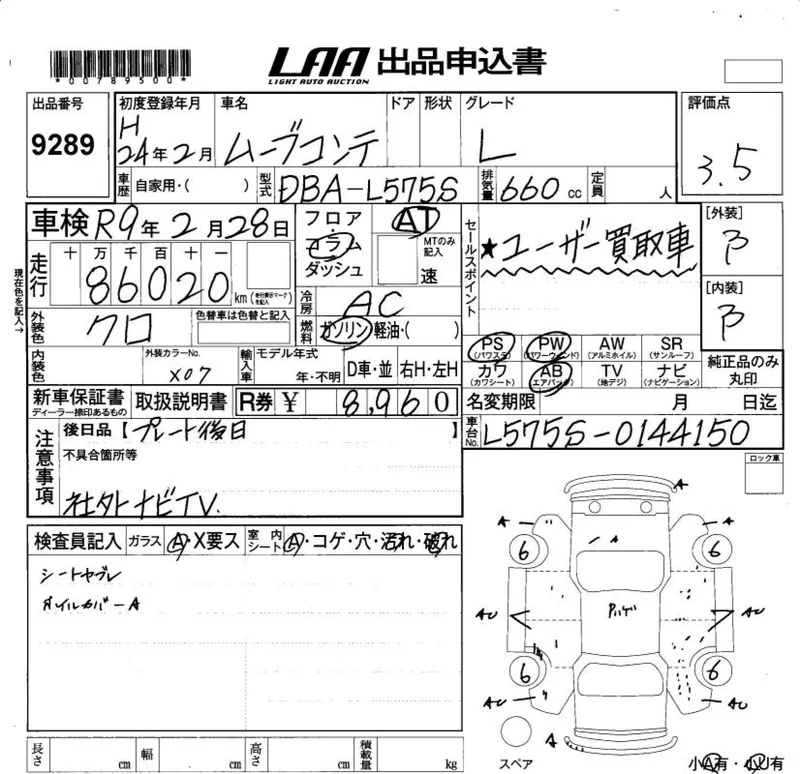 *00789500*
LAA 出品申込書
LIGHT AUTO AUCTION
出品番号 初度登録年月 車名 ドア 形状 グレード 評価点
9289 H24年2月 ムーブコンテ L 3.5
車歴 自家用・( ) 型式 DBA-L575S 排気量 660cc 定員 人
車検 R9年2月28日 フロア AT セールスポイント ★ユーザー買取車 [外装] B
コラム MTのみ記入
ダッシュ 速
走行 十 万 千 百 十 一
86020 km (走行表示マークを記入)
現在色を記入→
冷房 AC [内装] B
外装色 クロ 色替車は色替と記入 燃料 ガソリン・軽油・( )
PS (パワステ) PW (パワーウィンド) AW (アルミホイル) SR (サンルーフ)
内装色 外装カラーNo. X07 輸入車 モデル年式 年・不明 D車・並 右H・左H
カワ (カワシート) AB (エアバッグ) TV (地デジ) ナビ (ナビゲーション) 純正品のみ丸印
新車保証書 ディーラー捺印あるもの 取扱説明書 R券 ¥ 8,960 名変期限 月 日迄
車台No. L575S-0144150
注意事項 後日品【プレート後日】
不具合箇所等
社外ナビTV.
ロック車
検査員記入 ガラス A・X要ス 室内シート A・コゲ・穴・汚れ・破れ
シートヤブレ
オイルカバーA
A
A A
A
6 6
AU Pハゲ AU
6 6
AU AU
A
スペア 小A有・小U有
長さ cm 幅 cm 高さ cm 積載量 kg